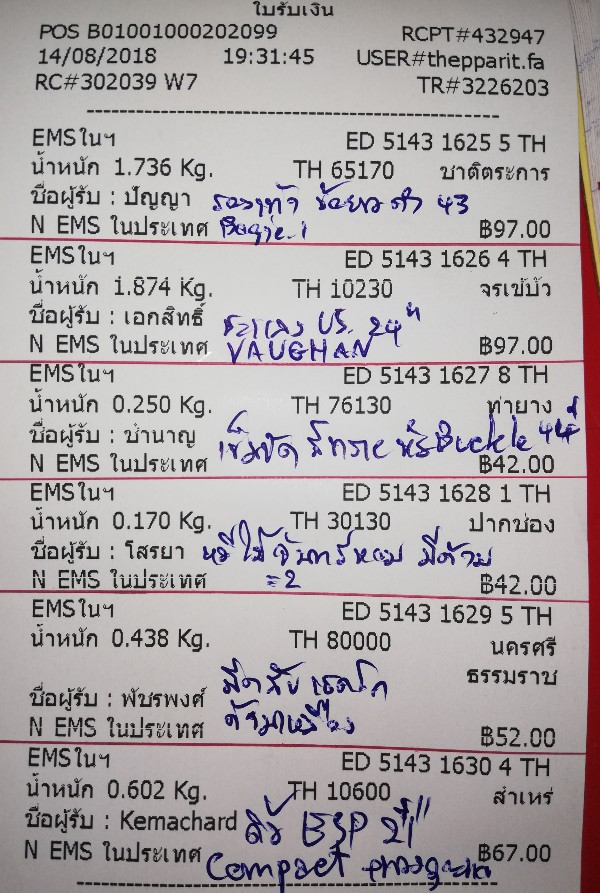 ใบรับเงิน
POS B01001000202099 RCPT#432947
14/08/2018 19:31:45 USER#thepparit.fa
RC#302039 W7 TR#3226203
EMSในฯ ED 5143 1625 5 TH
น้ำหนัก 1.736 Kg. TH 65170 ชาติตระการ
ชื่อผู้รับ : ปัญญา รองเท้า ข้อยาว ดำ 43
N EMS ในประเทศ ฿97.00
EMSในฯ ED 5143 1626 4 TH
น้ำหนัก 1.874 Kg. TH 10230 จรเข้บัว
ชื่อผู้รับ : เอกสิทธิ์ 24"
N EMS ในประเทศ VAUGHAN ฿97.00
EMSในฯ ED 5143 1627 8 TH
น้ำหนัก 0.250 Kg. TH 76130 ท่ายาง
ชื่อผู้รับ : ชำนาญ เข็มขัด สีทราย หัวBuckle 44"
N EMS ในประเทศ ฿42.00
EMSในฯ ED 5143 1628 1 TH
น้ำหนัก 0.170 Kg. TH 30130 ปากช่อง
ชื่อผู้รับ : โสรยา หวีไม้จันทร์หอม มีด้าม
N EMS ในประเทศ =2 ฿42.00
EMSในฯ ED 5143 1629 5 TH
น้ำหนัก 0.438 Kg. TH 80000 นครศรี
ธรรมราช
ชื่อผู้รับ : พัชรพงศ์ มีดพับ
N EMS ในประเทศ ฿52.00
EMSในฯ ED 5143 1630 4 TH
น้ำหนัก 0.602 Kg. TH 10600 สำเหร่
ชื่อผู้รับ : Kemachard ดิ้ว ESP 21"
N EMS ในประเทศ Compact ฿67.00